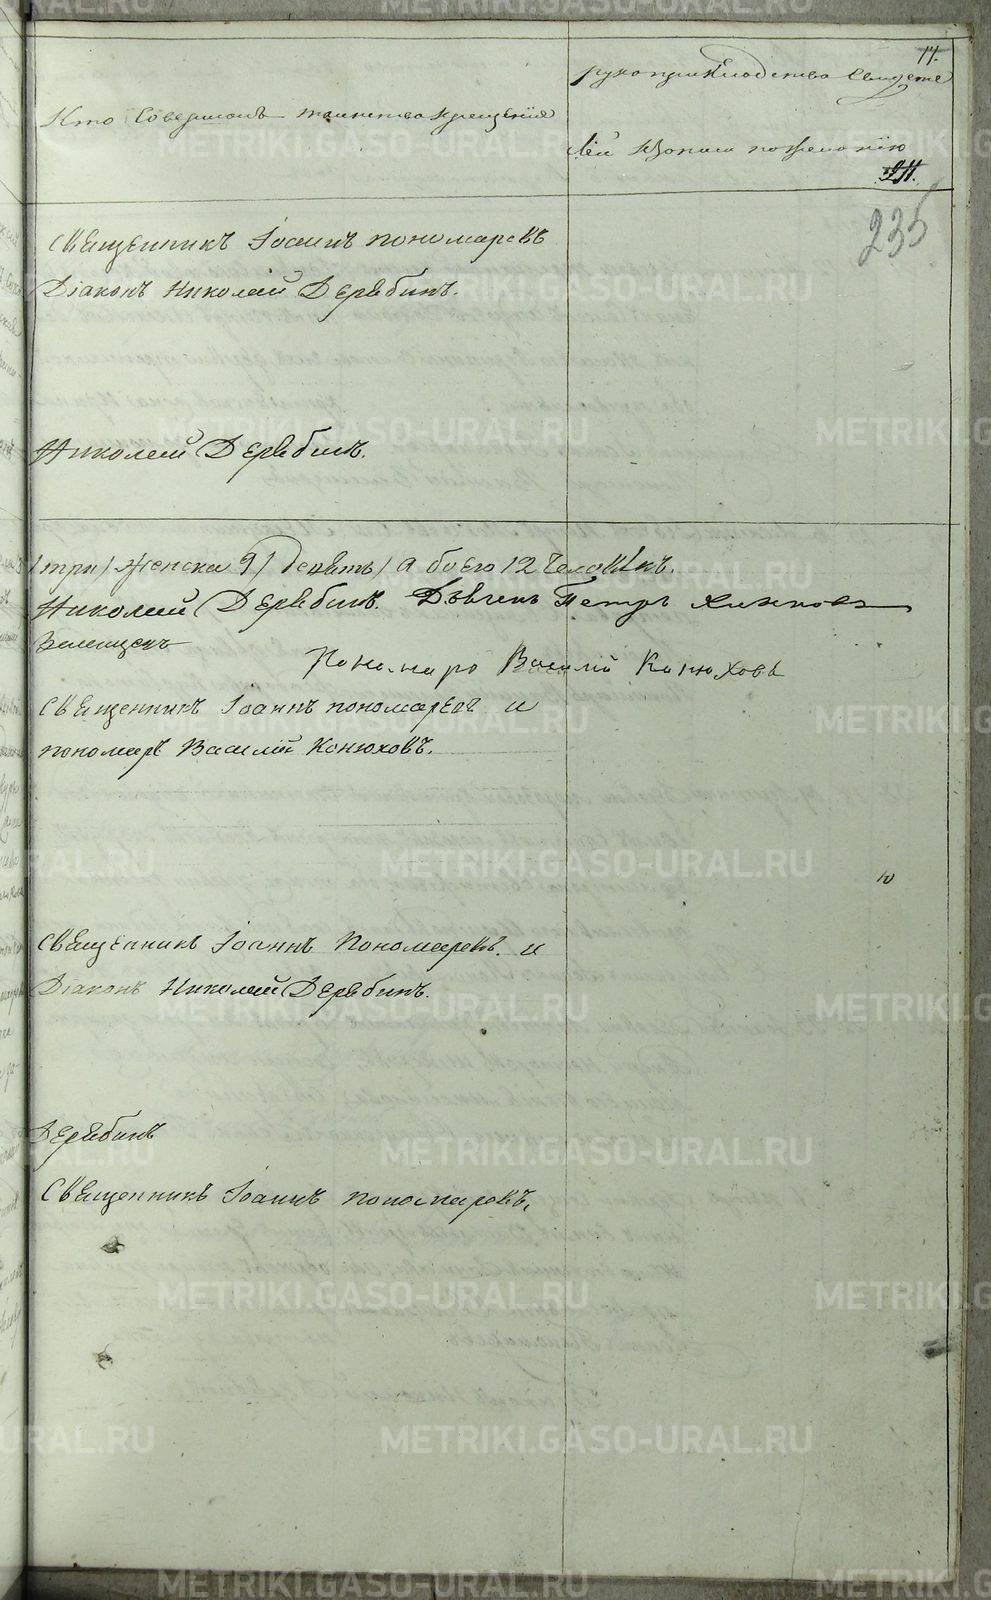 14.
Кто Совершалъ таинство крещенія
рукоприкладство Свидете
лей записи по желанію
211.
235
Священникъ Іоаннъ Пономаревъ
Діаконъ Николай Дерябинъ.
Николай Дерябинъ.
/три/ женска 9 /девять/ а обоего 12 человѣкъ.
Николай Дерябинъ. Дьячекъ Петръ
Пономарь Василій Конюховъ
Священникъ Іоаннъ Пономаревъ и
пономарь Василій Конюховъ.
Священникъ Іоаннъ Пономаревъ. и
Діаконъ Николай Дерябинъ.
Дерябинъ
Священникъ Іоаннъ Пономаревъ.
METRIKI.GASO-URAL.RU